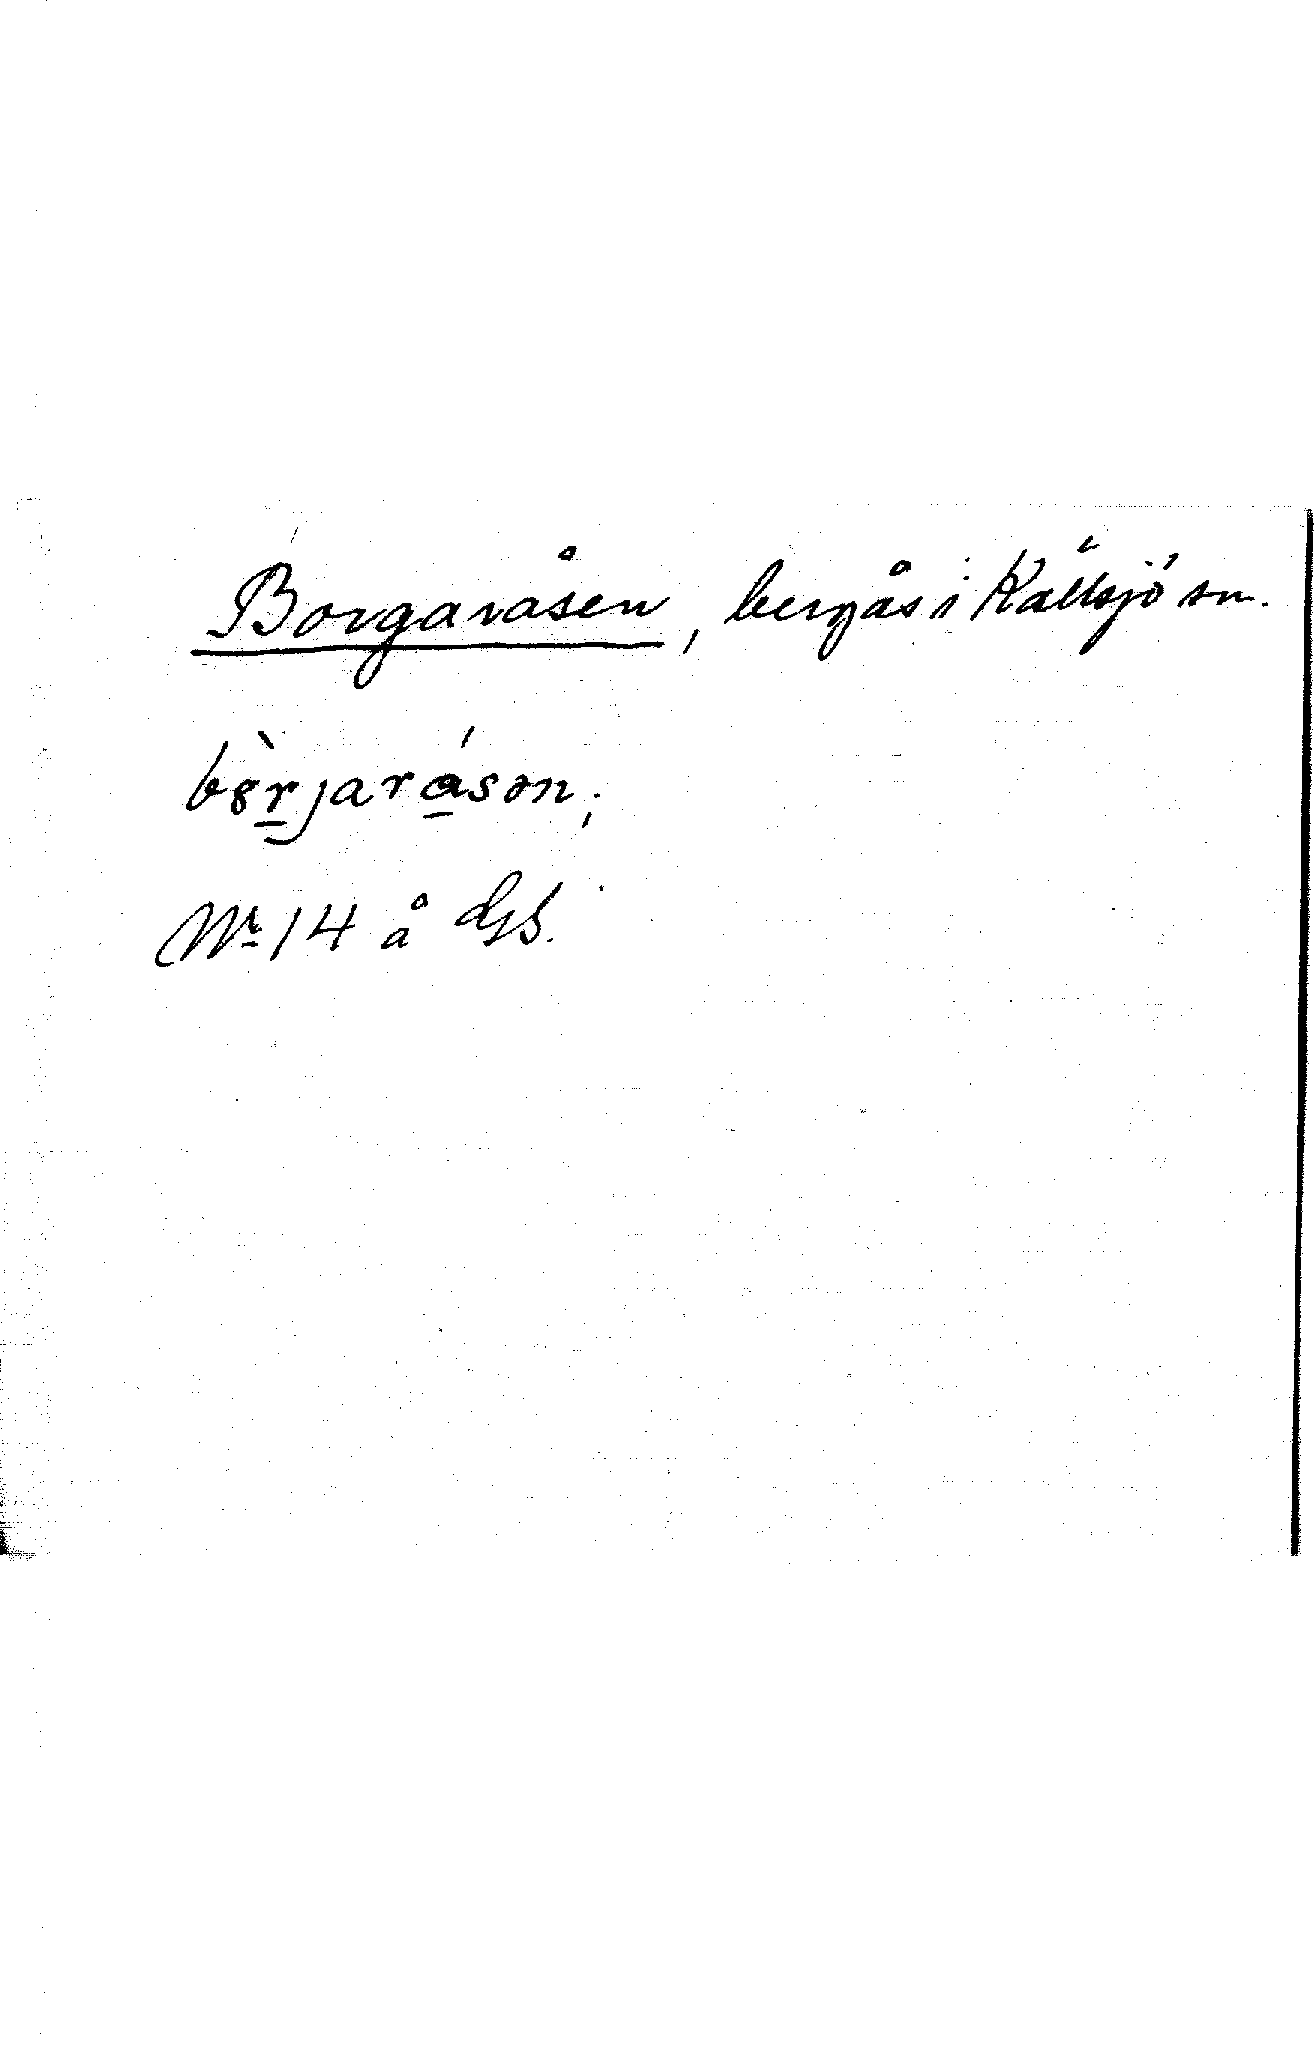 Borgaråsen, bergås i Källsjö sn.
bȣ̀r̲jarɑ̲́sən;
Nr 14 å GS.